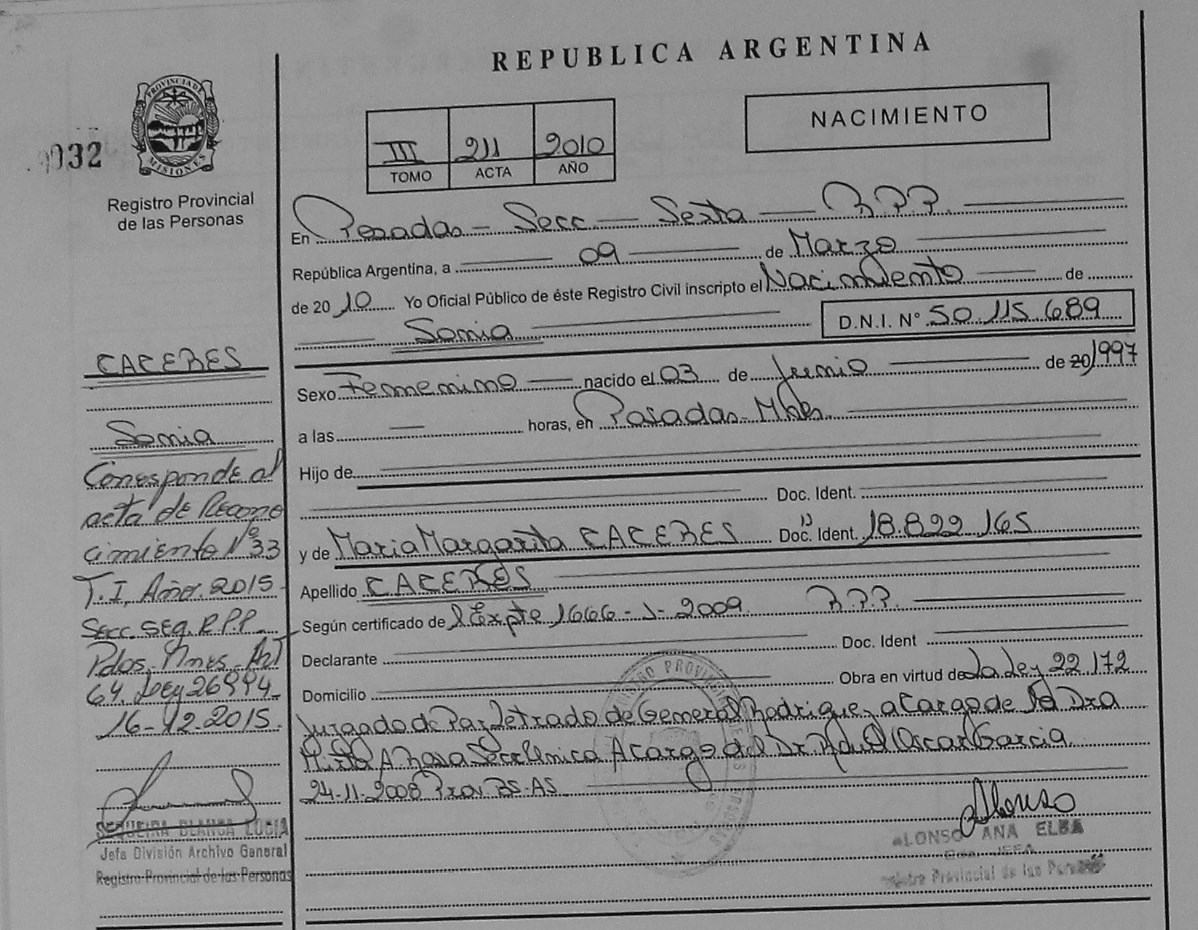 REPUBLICA ARGENTINA
PROVINCIA DE MISIONES
032
Registro Provincial
de las Personas
III 211 2010
TOMO ACTA AÑO
NACIMIENTO
En Posadas - Secc - Sexta - R.P.P.
República Argentina, a 09 de Marzo
de 2010 Yo Oficial Público de éste Registro Civil inscripto el Nacimiento de
Sonia D.N.I. N° 50.115.689
Sexo Femenino nacido el 03 de Junio de 20 1997
a las — horas, en Posadas Mnes
Hijo de
Doc. Ident.
y de Maria Margarita CACERES Doc. Ident. 18.822.165
Apellido CACERES
Según certificado de Expte 1666-J-2009 R.P.P.
Declarante Doc. Ident
Domicilio Obra en virtud de la Ley 22.172
Juzgado de Paz Letrado de General Rodriguez a Cargo de la Dra
Mirta A Rosa Secc Unica A cargo del Dr Raul Oscar Garcia
24-11-2008 Prov. BS-AS
Alonso
ALONSO ANA ELBA
JEFA
Registro Provincial de las Personas
CACERES
Sonia
Corresponde al
acta de Recono
cimiento Nº 33
T.I. Año. 2015
Secc. Seg. R.P.P
Pdas. Mnes. Art
64. Ley 26994
16-12-2015.
SEQUEIRA BLANCA LUCIA
Jefa División Archivo General
Registro Provincial de las Personas